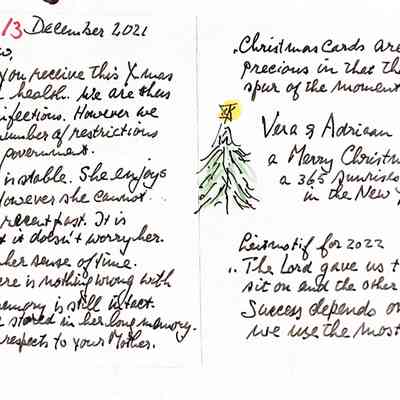 13 December 2021
you receive this Xmas
health. We are thus
infections. However we
number of restrictions
government.
is stable. She enjoys
However she cannot
recent past. It is
t it doesn't worry her.
her sense of time.
ere is nothing wrong with
memory is still intact.
stored in her long memory.
respects to your Mother.
Christmas Cards are
precious in that th
spur of the moment
Vera & Adriaan
a Merry Christm
a 365 Sunrises
in the New Y
Leitmotif for 2022
„ The Lord gave us t
sit on and the other
Success depends on
we use the most